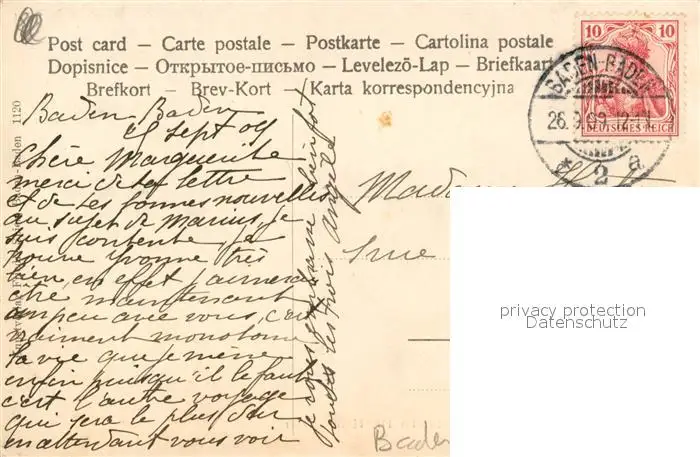 Post card – Carte postale – Postkarte – Cartolina postale
Dopisnice – Открытое-письмо – Levelező-Lap – Briefkaart
Brefkort – Brev-Kort – Karta korrespondencyjna
10 10
DEUTSCHES REICH
BADEN-BADEN
26.9.09. 12-1
* 2 a
1120
Baden Baden
Sept 09
Chère Marguerite
merci de ta lettre
et de tes bonnes nouvelles
au sujet de Marius, je
suis contente, je
trouve Yvonne très
bien, en effet j'aimerai
être maintenant
un peu avec vous, c'est
vraiment monotone
la vie que je mène
enfin puisqu'il le faut
c'est l'autre voyage
qui sera le plus dur
en attendant vous voir
je vous embrasse bientot
toutes les trois
Madame
Rue
Baden
privacy protection
Datenschutz